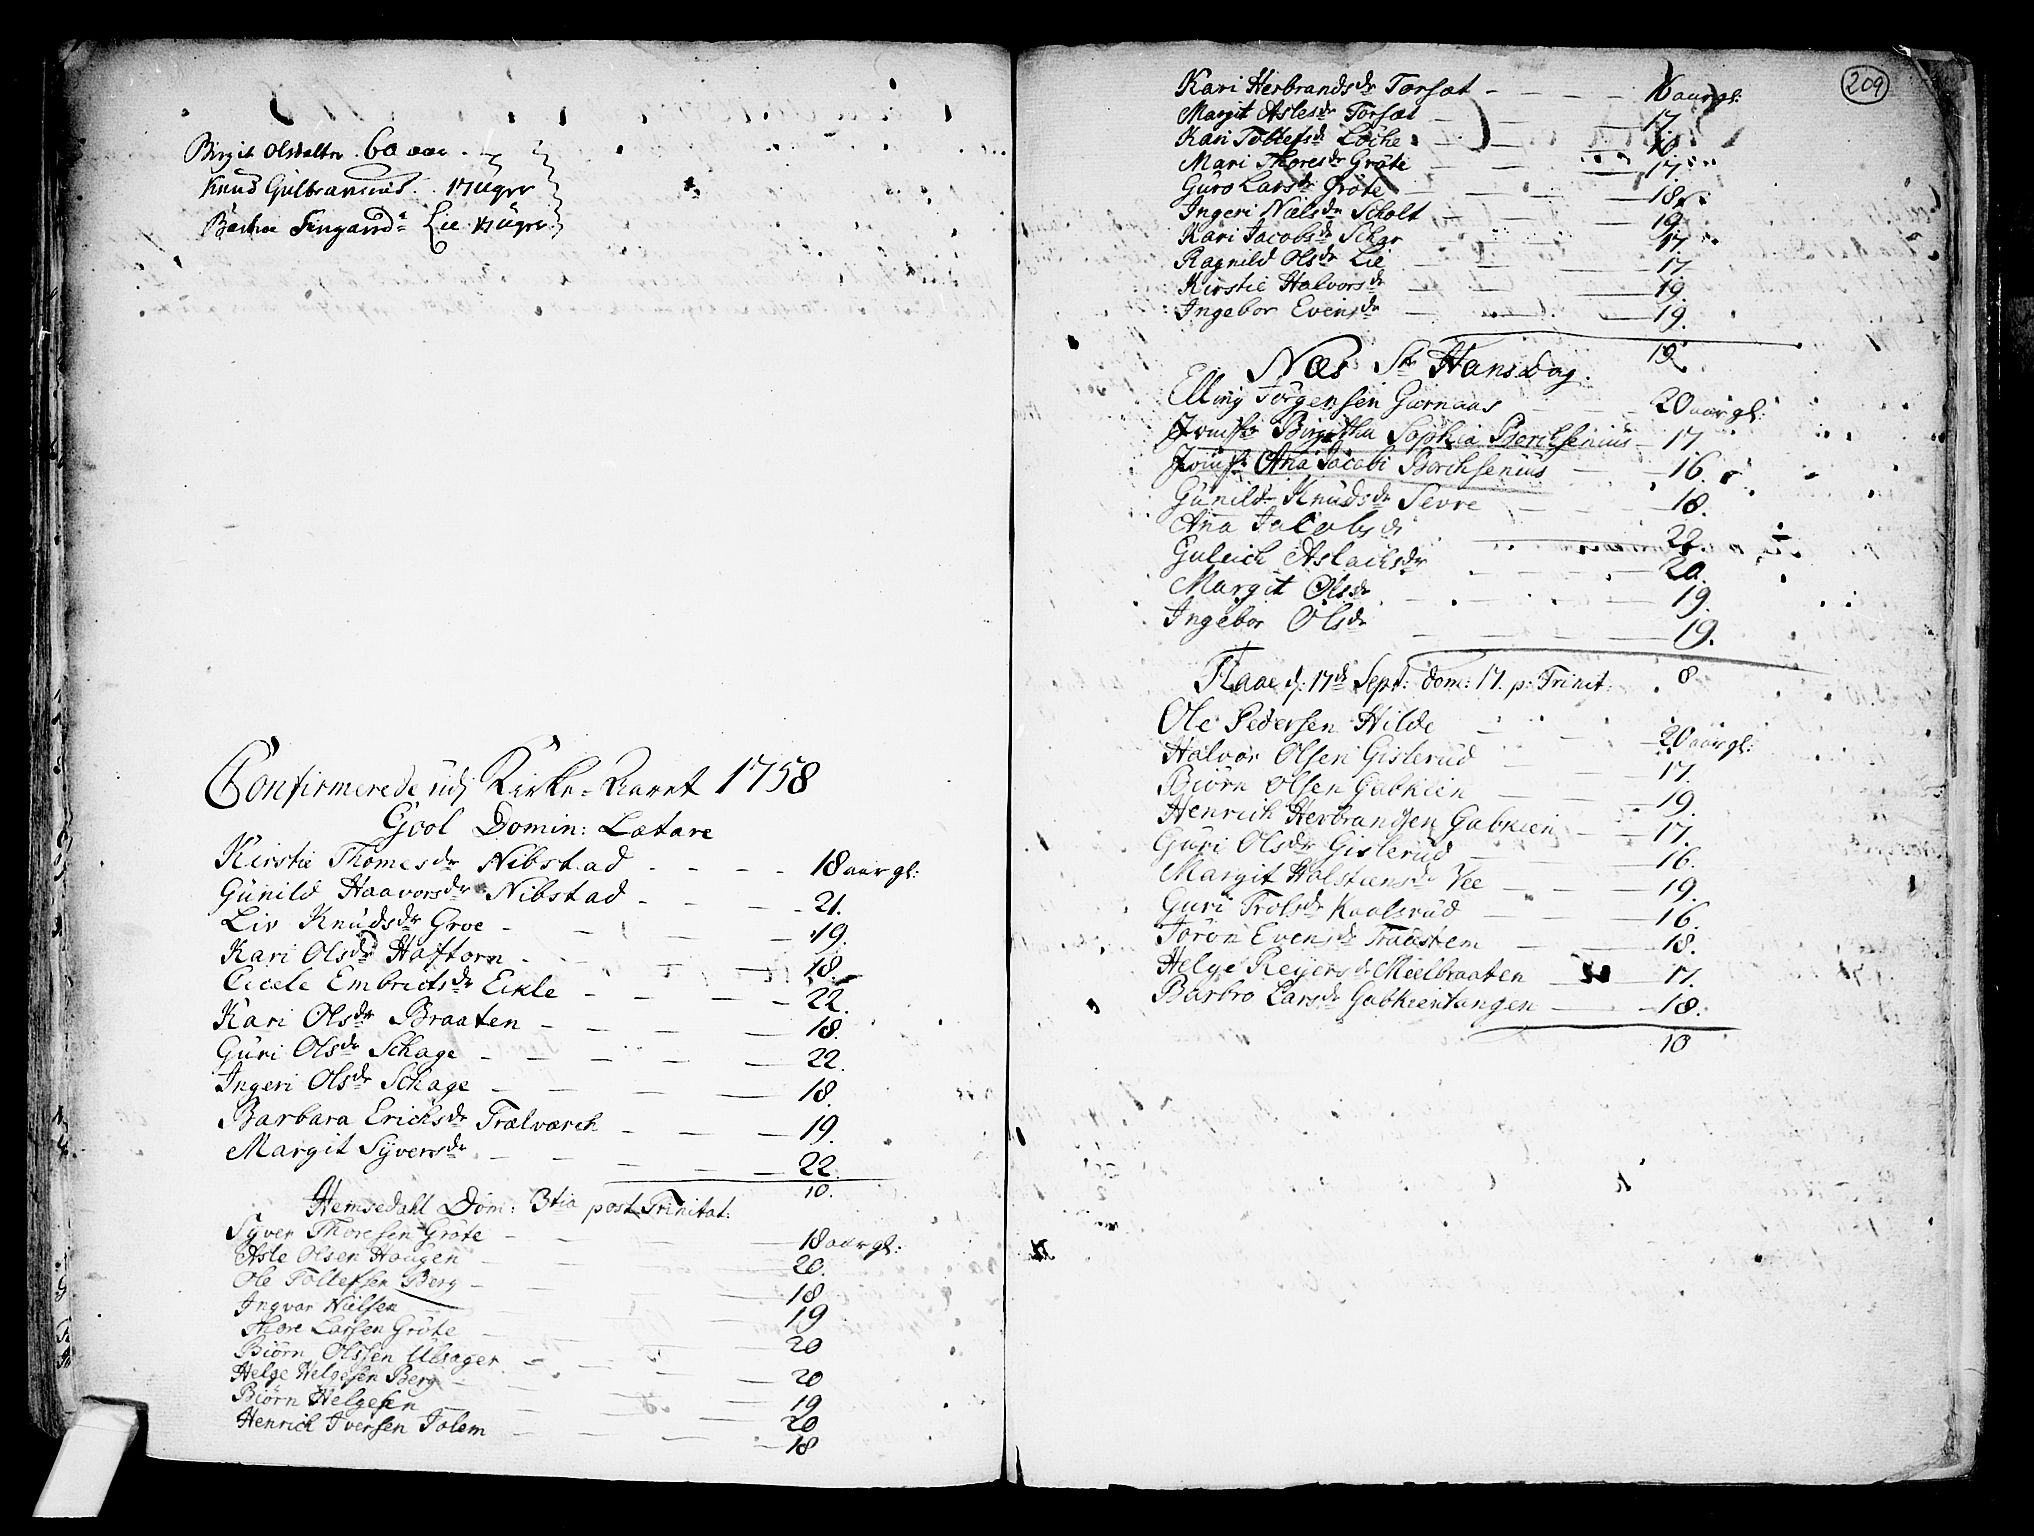 Birgit Olsdatter 60 aar
Knud Gulbrands. 17 Uger
Barbra Fingards. Lie 12 Uger
Confirmerede udj Kirke-Aaret 1758
Gool Domin: Lætare
Kirstie Thomesdr Nibstad - - - - 18 aar gl:
Gunild Haavorsdr Nibstad - - - 21.
Liv Knudsdr Groe - - - 19.
Kari Olsdr Haftorn - - - 18.
Cicele Embrictsdr Eikle - - - 22.
Kari Olsdr Braaten - - - 18.
Guri Olsdr Schage - - - 22.
Ingeri Olsdr Schage - - - 18.
Barbara Ericksdr Trælværch - - - 19.
Margit Syversdr - - - 22.
10.
Hemsedahl Dom: 3tia post Trinitat:
Syver Thoresen Gröte - - - 18 aar gl:
Asle Olsen Haugen - - - 20.
Ole Tollefsen Berg - - - 18
Ingvar Nielsen - - - 19
Thore Larsen Gröte - - - 20
Biörn Olssen Ulsager - - - 20
Helge Helgesen Berg - - - 19
Biörn Helgesen - - - 20
Henrich Iversen Tolem - - - 18
209
Kari Herbrandsdr Torsæt - - - 16 aar gl:
Margit Aslesdr Torsæt - - - 17.
Kari Tollefsdr Löche - - - 16
Mari Thoresdr Gröte - - - 17.
Guro Larsdr Gröte - - - 18.
Ingeri Nielsdr Scholt - - - 19
Kari Jacobsdr Schar - - - 17.
Ragnild Olsdr Lie - - - 17
Kirstie Halvorsdr - - - 19.
Ingebor Evensdr - - - 19.
19.
Næs St Hansdag.
Elling Jörgensen Garnaas - - - 20 aar gl:
Jomfr Birgitha Sophia Borchsenius - 17
Jomfr Ana Jacobi Borchsenius - - - 16.
Gunild Knudsdr Sevre - - - 18.
Ana Jacobsdr - - - 22.
Guleich Aslachsdr - - - 20.
Margit Olsdr - - - 19.
Ingebor Olsdr - - - 19.
8
Flaae d: 17d Sept: Dom: 17. p: Trinit:
Ole Pedersen Hilde - - - 20 aar gl:
Halvor Olsen Gislerud - - - 17.
Biörn Olsen Gabkien - - - 19.
Henrich Herbrandsen Gabkien - - - 17.
Guri Olsdr Gislerud - - - 16.
Margit Holstensdr Vee - - - 19.
Guri Trolsdr Kaalsrud - - - 16.
Jörön Evensdr Traustem - - - 18.
Helge Reyersdr Meelbraaten 17.
Barbro Larsdr Gabkientangen - - - 18.
10